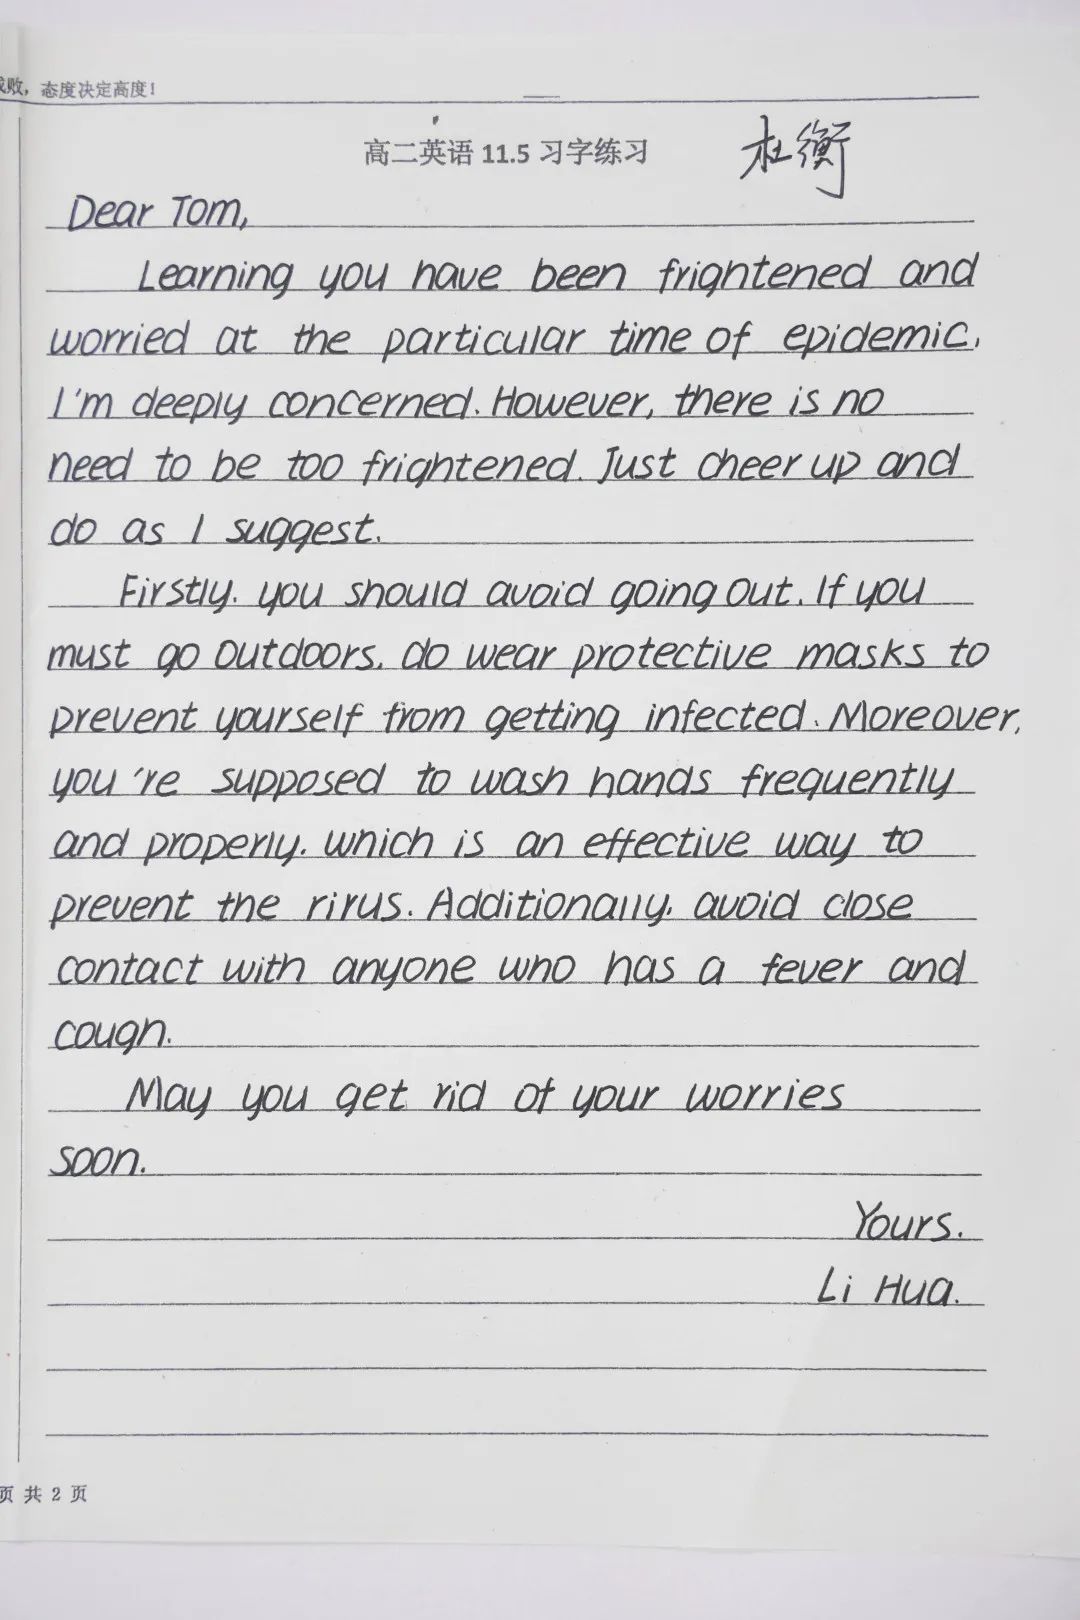 败，态度决定高度！
高二英语 11.5 习字练习
杜衡
Dear Tom,
Learning you have been frightened and
worried at the particular time of epidemic,
I'm deeply concerned. However, there is no
need to be too frightened. Just cheer up and
do as I suggest.
Firstly, you should avoid going out. If you
must go outdoors, do wear protective masks to
prevent yourself from getting infected. Moreover,
you're supposed to wash hands frequently
and properly, which is an effective way to
prevent the rirus. Additionally, avoid close
contact with anyone who has a fever and
cough.
May you get rid of your worries
soon.
Yours.
Li Hua.
页 共 2 页